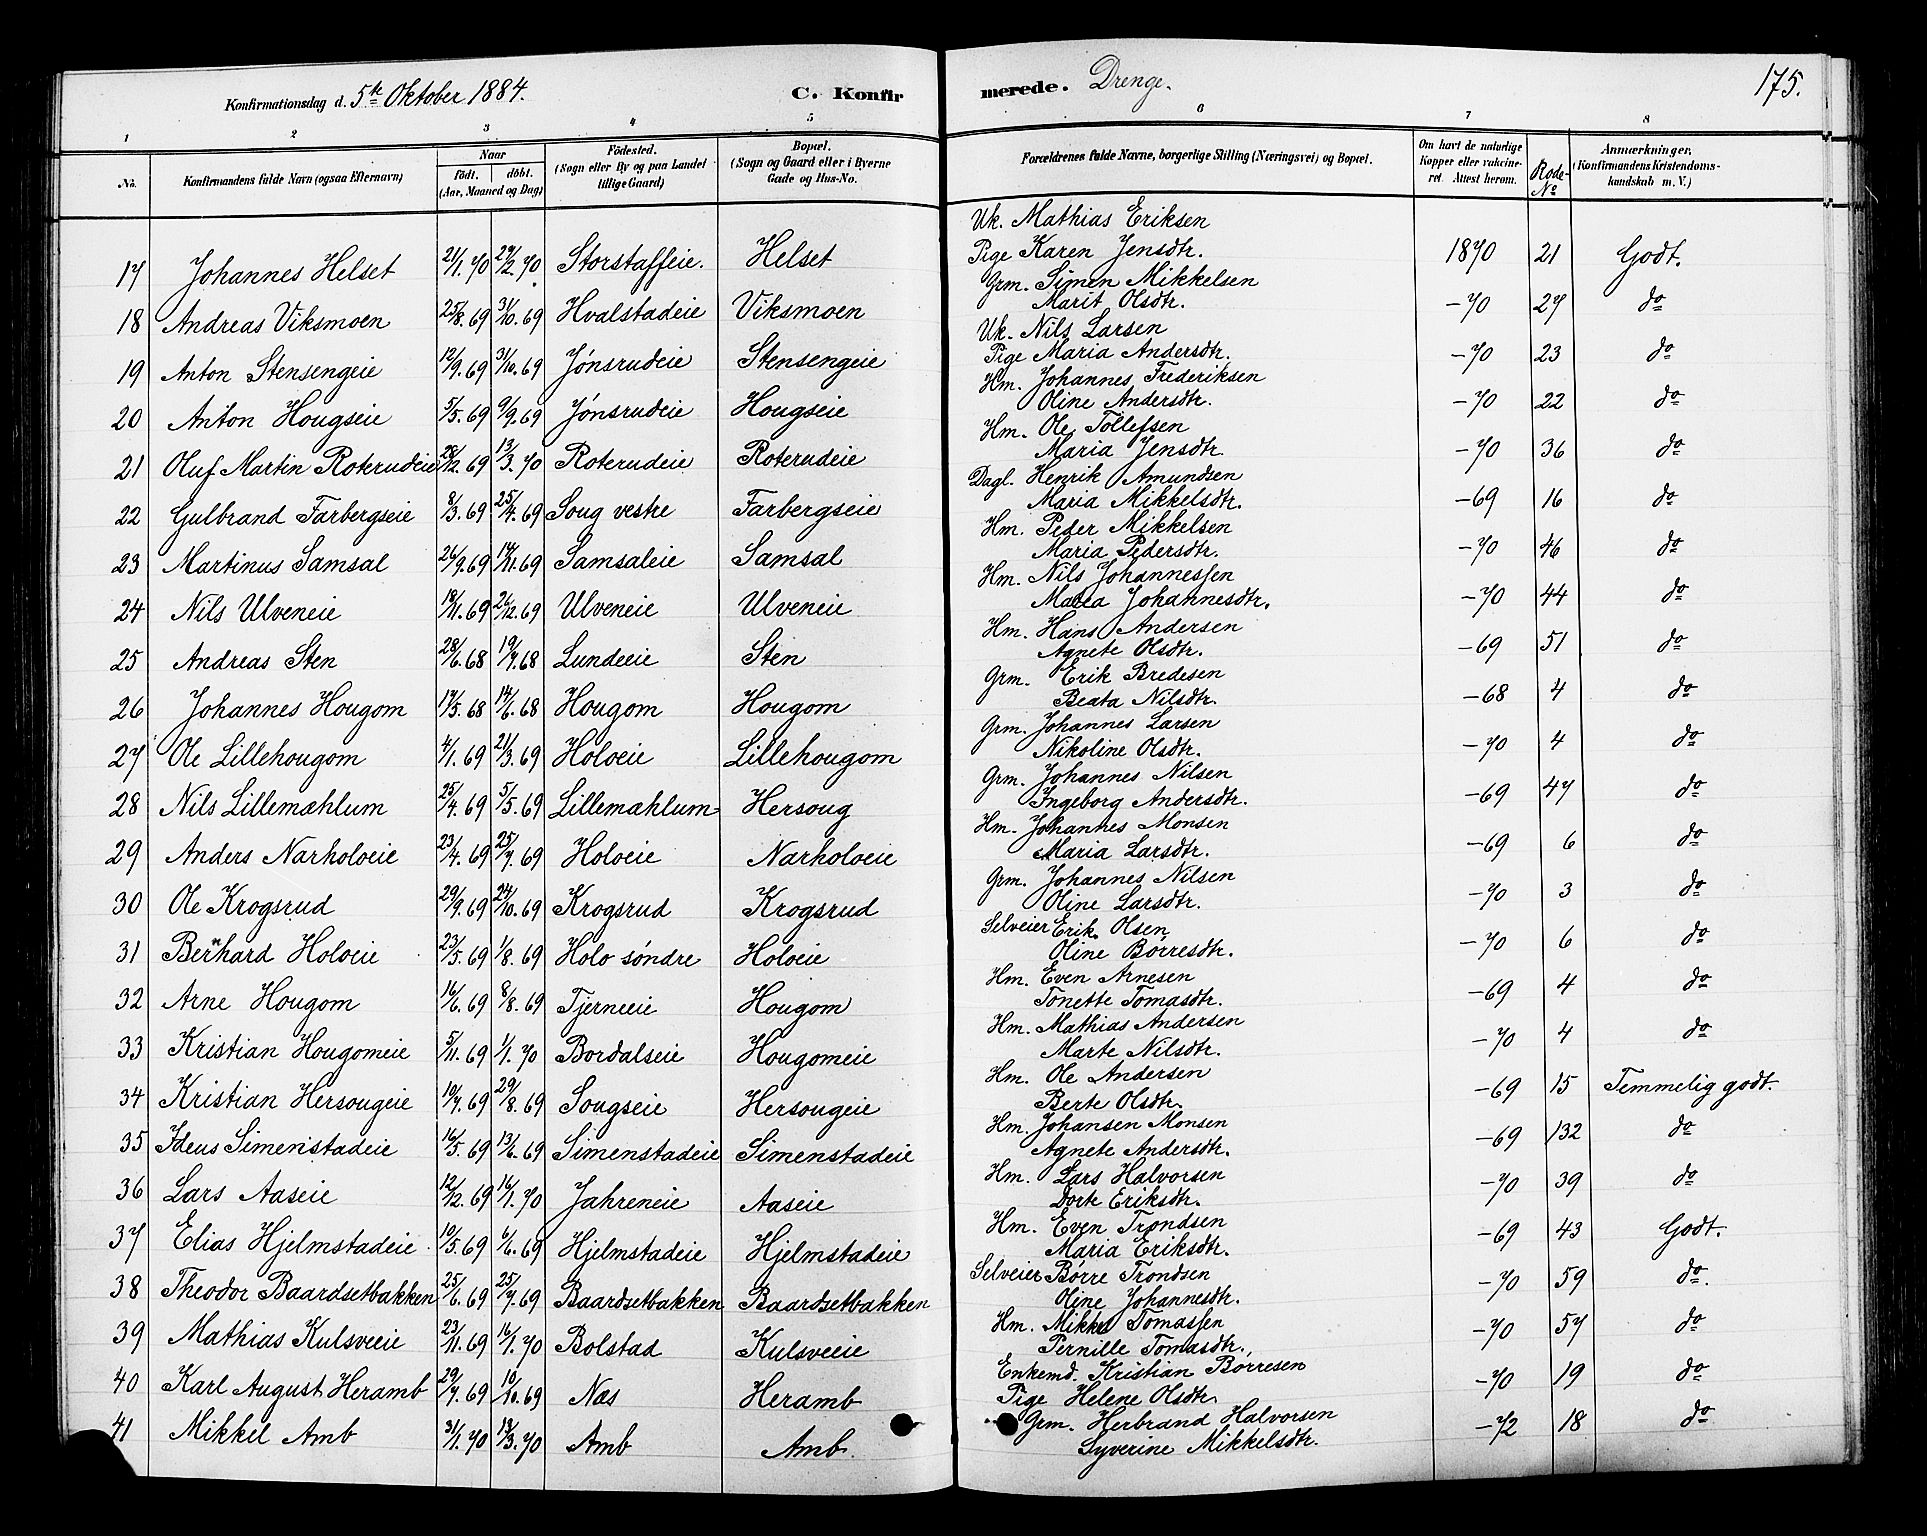 Konfirmationsdag d. 5te Oktober 1884. C. Konfirmerede. Drenge. 175.
1 2 3 4 5 6 7 8
No. Konfirmandens fulde Navn (ogsaa Efternavn) Naar Födt. döbt. (Aar, Maaned og Dag) Födested. (Sogn eller By og paa Landet tillige Gaard) Bopæl. (Sogn og Gaard eller i Byerne Gade og Hus-No. Forældrenes fulde Navne, borgerlige Stilling (Næringsvei) og Bopæl. Om havt de naturlige Kopper eller vakcineret. Attest herom. Rode-No Anmærkninger, (Konfirmandens Kristendomskundskab m. V.)
17 Johannes Helset 21/1. 70 27/2. 70 Storstaffeie. Helset Uk. Mathias Eriksen
Pige Karen Jensdtr. 1870 21 Godt.
18 Andreas Viksmoen 25/8. 69 31/10. 69 Hvalstadeie Viksmoen Grm. Simen Mikkelsen
Marit Olsdtr. -70 27 do
19 Anton Stensengeie 12/9. 69 31/10. 69 Jónsrudeie Stensengeie Uk. Nils Larsen
Pige Maria Andersdtr. -70 23 do
20 Anton Hougseie 5/5. 69 9/9. 69 Jónsrudeie Hougseie Hm. Johannes Frederiksen
Oline Andersdtr. -70 22 do
21 Oluf Martin Roterudeie 28/12. 69 13/3. 70 Roterudeie Roterudeie Hm. Ole Tollefsen
Maria Jensdtr. -70 36 do
22 Gulbrand Farbergseie 8/3. 69 25/4. 69 Soug vestre Farbergseie Dagl. Henrik Amundsen
Maria Mikkelsdtr. -69 16 do
23 Martinus Samsal 26/9. 69 14/11. 69 Samsaleie Samsal Hm. Peder Mikkelsen
Maria Pedersdtr. -70 46 do
24 Nils Ulveneie 18/11. 69 26/12. 69 Ulveneie Ulveneie Hm. Nils Johannessen
Maria Johannesdtr. -70 44 do
25 Andreas Sten 28/6. 68 19/7. 68 Lundeeie Sten Hm. Hans Andersen
Agnete Olsdtr. -69 51 do
26 Johannes Hougom 17/5. 68 14/6. 68 Hougom Hougom Grm. Erik Bredesen
Beata Nilsdtr. -68 4 do
27 Ole Lillehougom 4/1. 69 21/3. 69 Holoeie Lillehougom Grm. Johannes Larsen
Nikoline Olsdtr. -70 4 do
28 Nils Lillemæhlum 25/4. 69 5/5. 69 Lillemæhlum Hersoug Grm. Johannes Nilsen
Ingeborg Andersdtr. -69 47 do
29 Anders Narholoeie 23/4. 69 25/7. 69 Holoeie Narholoeie Hm. Johannes Monsen
Maria Larsdtr. -69 6 do
30 Ole Krogsrud 29/9. 69 24/10. 69 Krogsrud Krogsrud Grm. Johannes Nilsen
Oline Larsdtr. -70 3 do
31 Bernhard Holoeie 23/5. 69 1/8. 69 Holo söndre Holoeie Selveier Erik Olsen
Oline Börresdtr. -70 6 do
32 Arne Hougom 16/6. 69 8/8. 69 Tjerneeie Hougom Hm. Even Arnesen
Tonette Tomasdtr. -69 4 do
33 Kristian Hougomeie 5/11. 69 1/1. 70 Bordalseie Hougomeie Hm. Mathias Andersen
Marte Nilsdtr. -70 4 do
34 Kristian Hersougeie 19/7. 69 29/8. 69 Sougseie Hersougeie Hm. Ole Andersen
Berte Olsdtr. -69 15 Temmelig godt.
35 Ideus Simenstadeie 16/5. 69 13/6. 69 Simenstadeie Simenstadeie Hm. Johansen Monsen
Agnete Andersdtr. -69 132 do
36 Lars Aaseie 12/12. 69 16/1. 70 Jahreneie Aaseie Hm. Lars Halvorsen
Dorte Eriksdtr. -70 39 do
37 Elias Hjelmstadeie 10/5. 69 6/6. 69 Hjelmstadeie Hjelmstadeie Hm. Even Trondsen
Maria Eriksdtr. -69 43 Godt.
38 Theodor Baardsetbakken 25/6. 69 25/7. 69 Baardsetbakken Baardsetbakken Selveier Börre Trondsen
Oline Johannesdtr. -70 59 do.
39 Mathias Kulsveeie 23/11. 69 16/1. 70 Bolstad Kulsveeie Hm. Mikkel Tomassen
Pernille Tomasdtr. -70 57 do
40 Karl August Heramb 29/7. 69 10/10. 69 Næs Heramb Enkemd. Kristian Börresen
Pige Helene Olsdtr. -70 19 do
41 Mikkel Amb 31/1. 70 13/3. 70 Amb Amb. Grm. Herbrand Halvorsen
Syverine Mikkelsdtr. -72 18 do